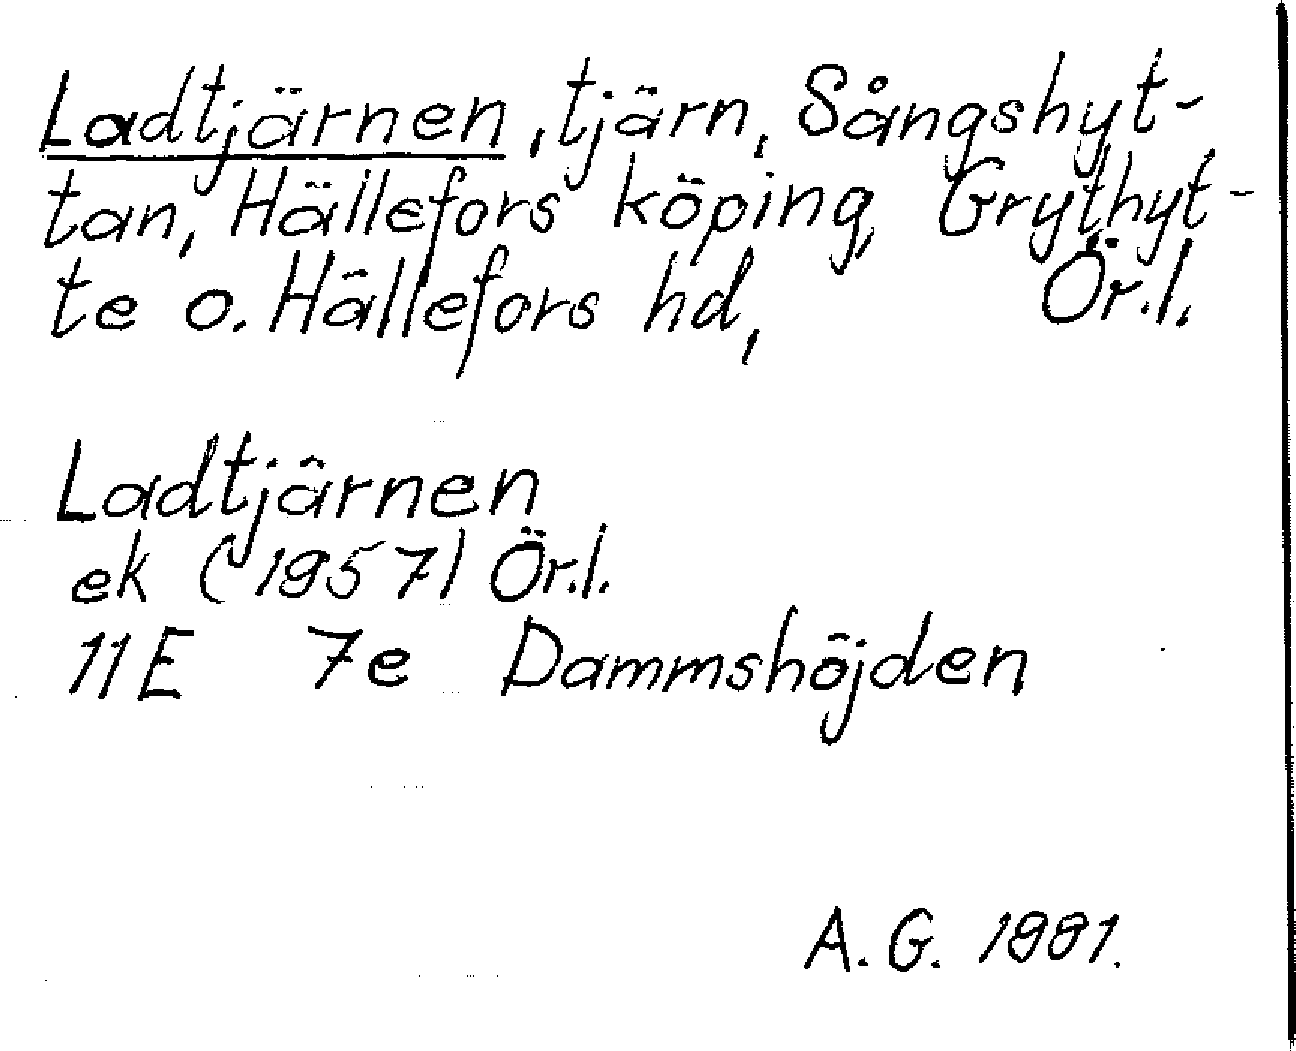 Ladtjärnen, tjärn, Sångshyt-
tan, Hällefors köping, Grythyt-
te o. Hällefors hd, Ör.l.
Ladtjärnen
ek (1957) Ör.l.
11E 7e Dammshöjden
A. G. 1981.